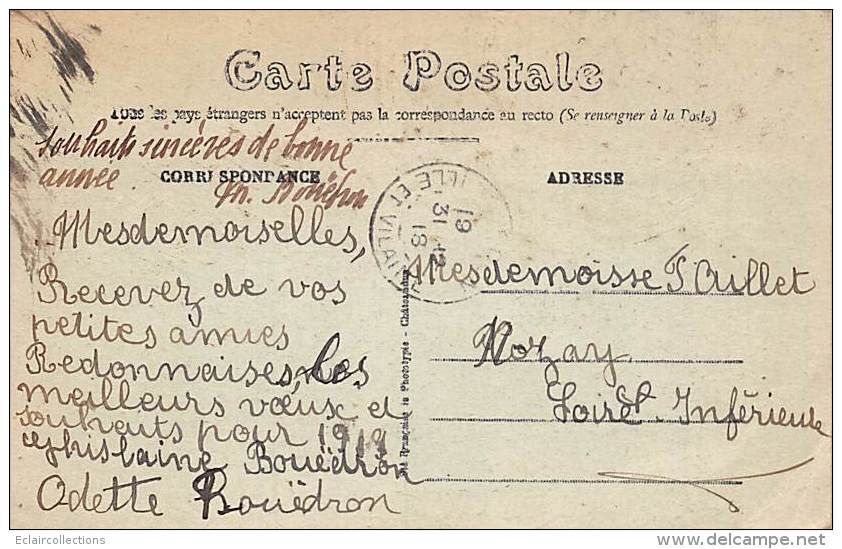 Carte Postale
Tous les pays étrangers n'acceptent pas la correspondance au recto (Se renseigner à la Poste)
souhaits sincères de bonne
année.
CORRESPONDANCE
ADRESSE
Mesdemoiselles,
Recevez de vos
petites amies
Redonnaises, les
meilleurs vœux et
souhaits pour 1919
Ghislaine Bouëdron
Odette Bouëdron
ILLE ET VILAINE
19
31 12
18
Mesdemoisse
Nozay
Loire Inférieure
Française de Phototypie - Châteaudun
Eclaircollections
www.delcampe.net